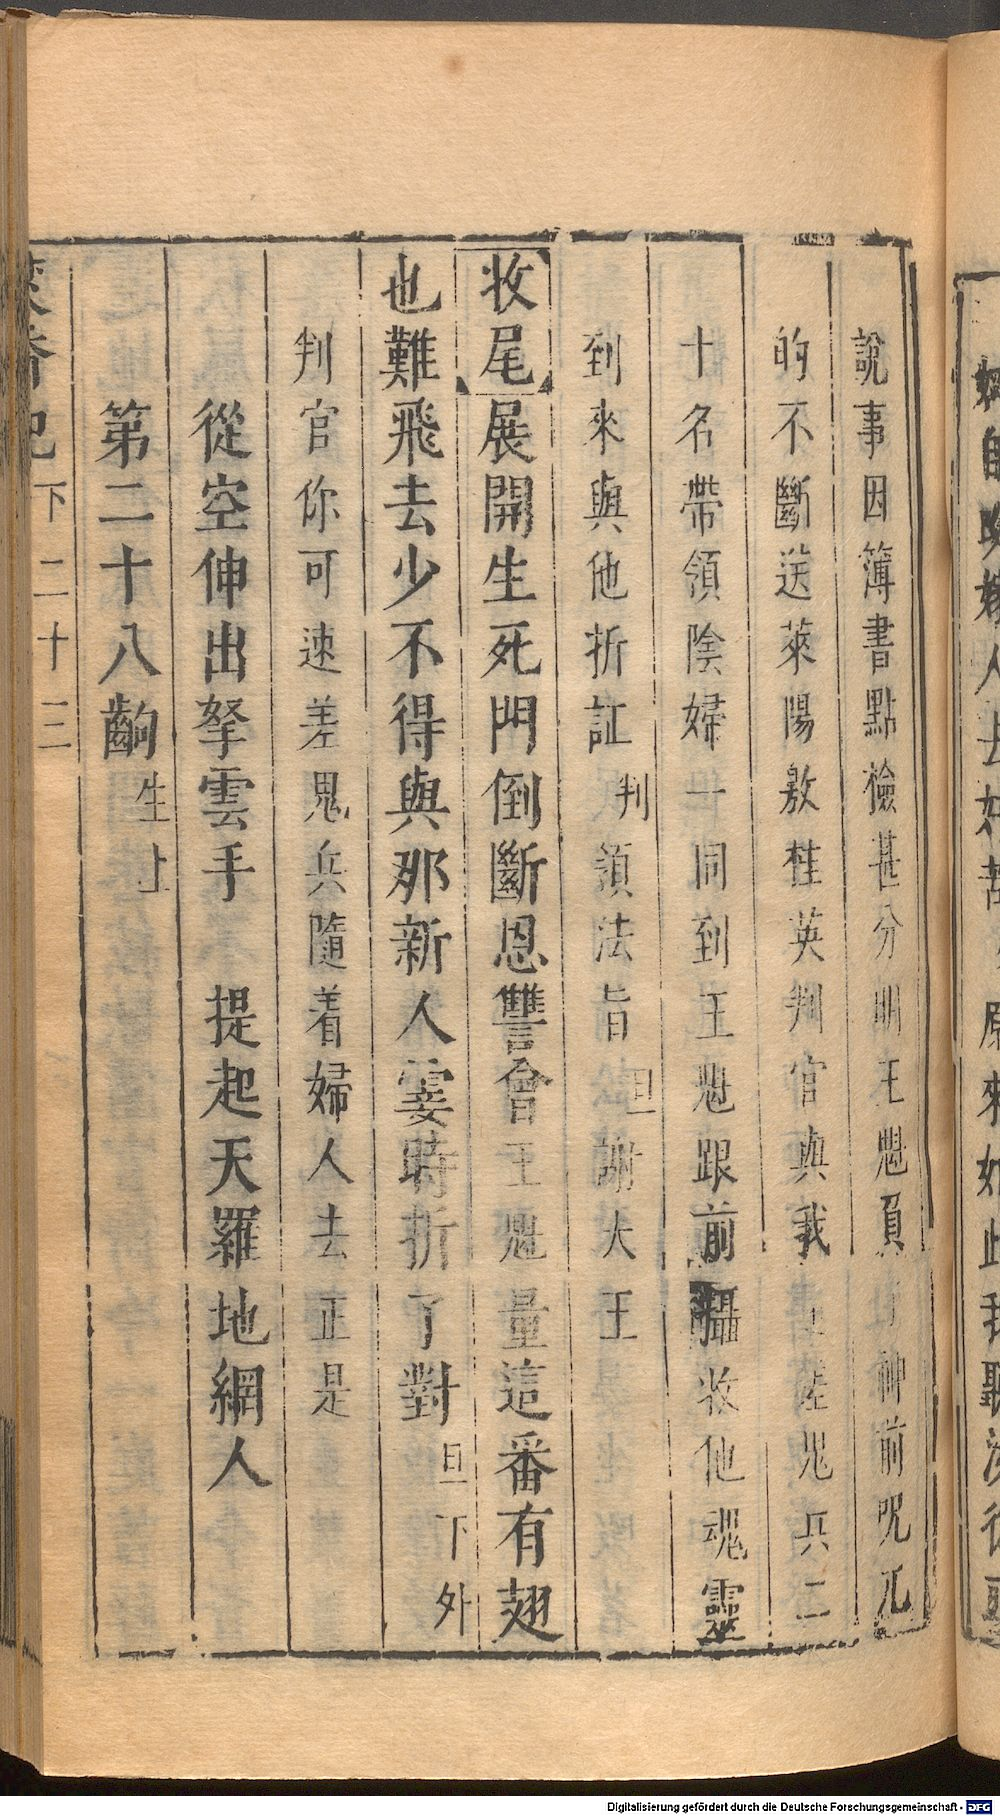 說事因簿書點檢甚分明王魁負 神前呪兀
的不斷送萊陽敫桂英判官與我 陰兵二
十名帶領陰婦一同到王魁跟前攝收他魂靈
到來與他折証判領法旨旦謝大王
收尾展開生死門倒斷恩讐會王魁量這番有翅
也難飛去少不得與那新人霎時折了對旦下外
判官你可速差鬼兵隨着婦人去正是
從空伸出拏雲手 提起天羅地網人
第二十八齣生上
焚香記下 二十三
原來如此我聽
Digitalisierung gefördert durch die Deutsche Forschungsgemeinschaft - DFG